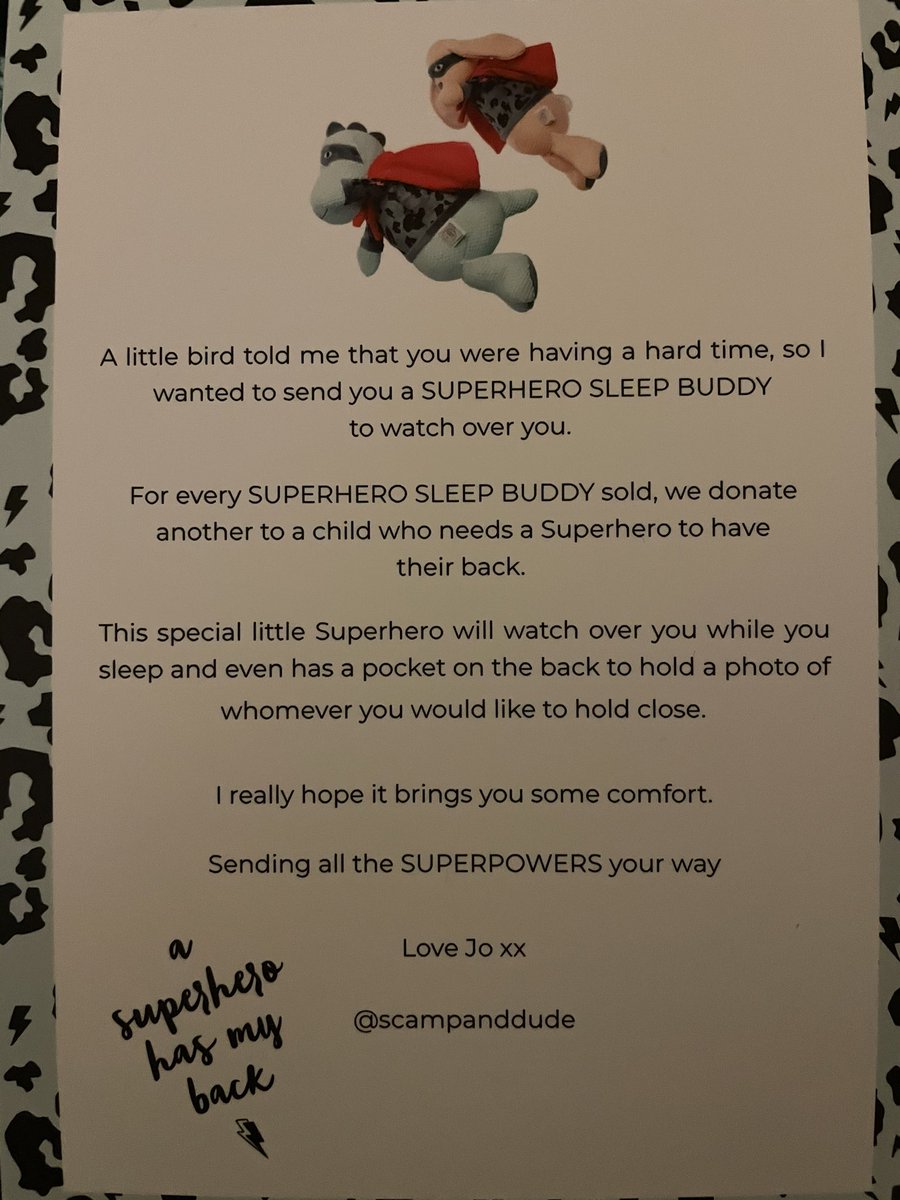 A little bird told me that you were having a hard time, so I
wanted to send you a SUPERHERO SLEEP BUDDY
to watch over you.
For every SUPERHERO SLEEP BUDDY sold, we donate
another to a child who needs a Superhero to have
their back.
This special little Superhero will watch over you while you
sleep and even has a pocket on the back to hold a photo of
whomever you would like to hold close.
I really hope it brings you some comfort.
Sending all the SUPERPOWERS your way
Love Jo xx
@scampanddude
a
superhero
has my
back